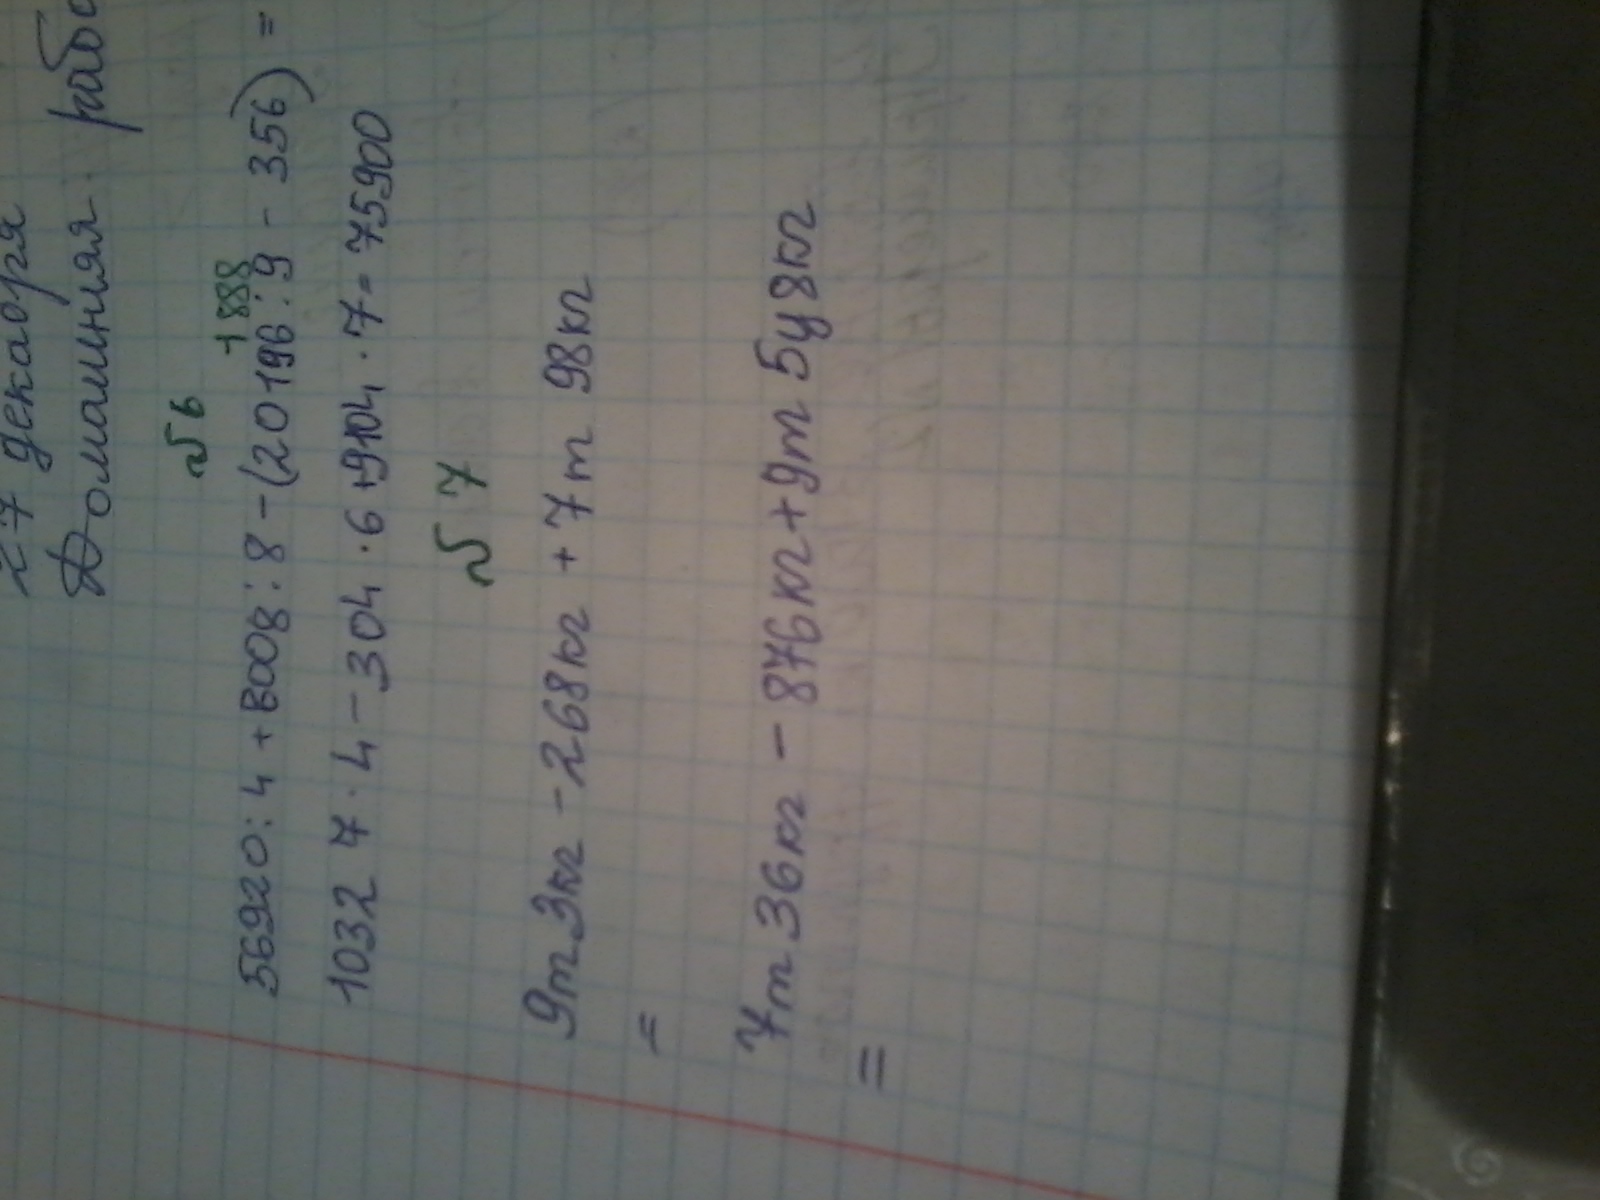 27 декабря
Домашняя рабо
№6
1 888
56920 : 4 + 8008 : 8 - (20196 : 9 - 356) =
10327 · 4 - 304 · 6 + 9104 · 7 = 75900
№7
9т 3кг - 268кг + 7т 98кг
=
7т 36кг - 876кг + 9т 5ц 8кг
=